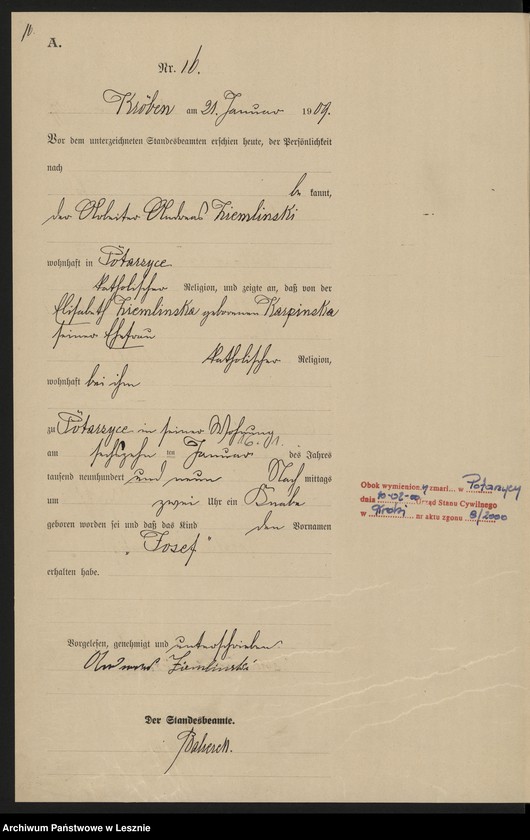 A.
Nr. 16.
Kröben am 21. Januar 1909.
Vor dem unterzeichneten Standesbeamten erschien heute, der Persönlichkeit
nach
be kannt,
der Arbeiter Andreas Ziemlinski
wohnhaft in Potarzyce
katholischer Religion, und zeigte an, daß von der
Elisabeth Ziemlinska geborenen Karpinska
seiner Ehefrau
katholischer Religion,
wohnhaft bei ihm
zu Potarzyce in seiner Wohnung
16. 1.
am sechszehn ten Januar des Jahres
tausend neunhundert und neun Nach mittags
um zwei Uhr ein Knabe
geboren worden sei und daß das Kind den Vornamen
"Josef"
erhalten habe.
Vorgelesen, genehmigt und unterschrieben
Andreas Ziemlinski
Der Standesbeamte.
Obok wymieniony zmarł w Potarzycy
dnia 10-02-00 Urząd Stanu Cywilnego
w Krobi nr aktu zgonu 8/2000
Archiwum Państwowe w Lesznie